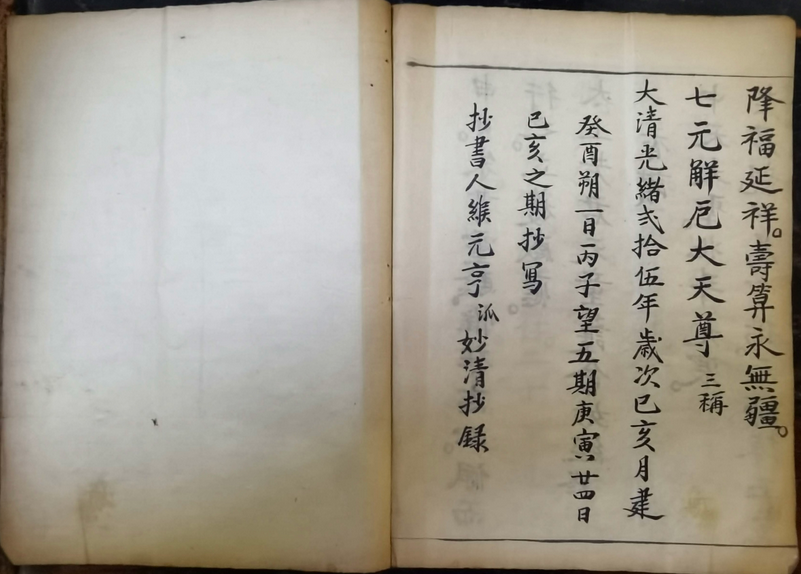 降福延祥。壽算永無疆。
七元解厄大天尊 三稱
大清光緒弍拾伍年歲次己亥月建
癸酉朔一日丙子望五期庚寅廿四日
己亥之期抄寫
抄書人維元亨派妙清抄録